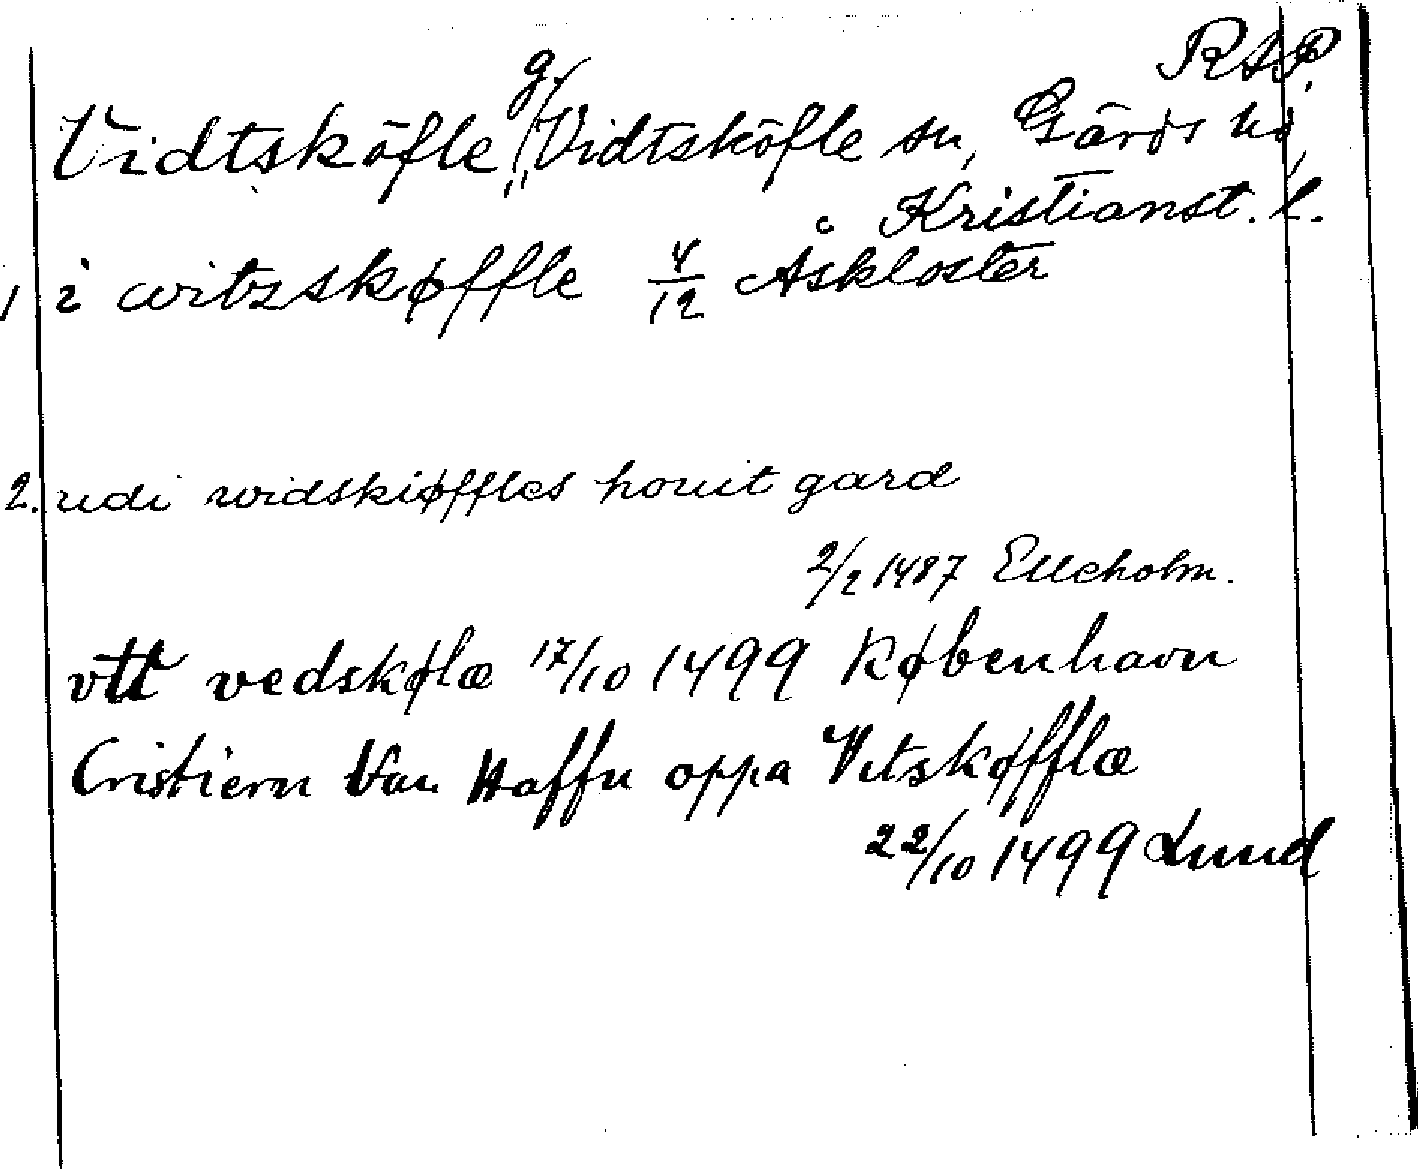 RAP.
Vidtsköfle, g. Vidtsköfle sn, Gärds hd,
Kristianst. l.
1 i witzskøffle 4/12 Åskloster
2. udi widskiøffles houit gard
2/2 1487 Elleholm.
vtt vedskølæ 17/10 1499 København
Cristiern Van Haffn oppa Vitskøfflæ
22/10 1499 Lund